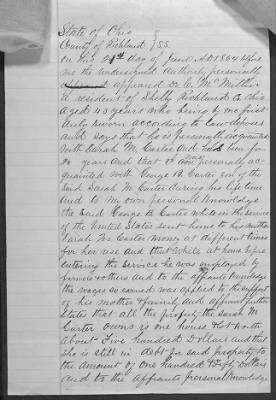 State of Ohio }
County of Richland } SS.
On this 21st day of June A.D 1864 before
me the undersigned Authority personally
appeared Dr C. M. Miller
A resident of Shelby Richland Co Ohio
Aged 43 years who being by me first
duly sworn according to law deposes
and says that he is personally acquainted
with Sarah M. Carter And has been for
years and that he was personally ac-
quainted with George B. Carter son of the
said Sarah M Carter during his life time
and to my own personal Knowledge
the said George B. Carter while in the service
of the United States sent home to his mother
Sarah M. Carter money at different times
for her use and that While at home before
entering the Service he was employed by
farmers & others and to the affiants Knowledge
the wages so earned was applied to the support
of his mother & family and affiant further
States that all the property the Sarah M
Carter owns is one house & lot worth
about Five hundred Dollars and that
she is still in debt for said property to
the amount of one hundred & Fifty Dollars
and to the affiants personal knowledge